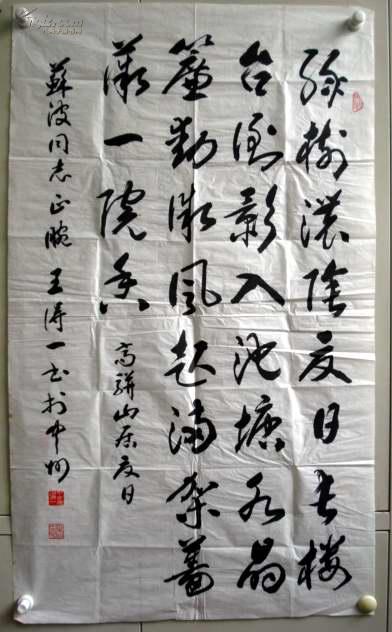 绿樹濃陰夏日长楼
台倒影入池塘水晶
簾動微風起满架薔
薇一院香
高骈山居夏日
蘇波同志正腕 王得一书于中州